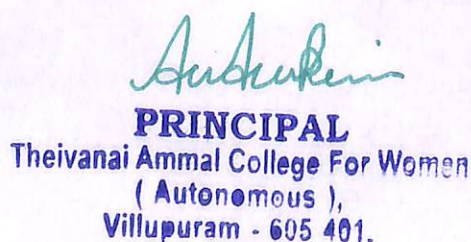 PRINCIPAL
Theivanai Ammal College For Women
( Autonomous ),
Villupuram - 605 401.